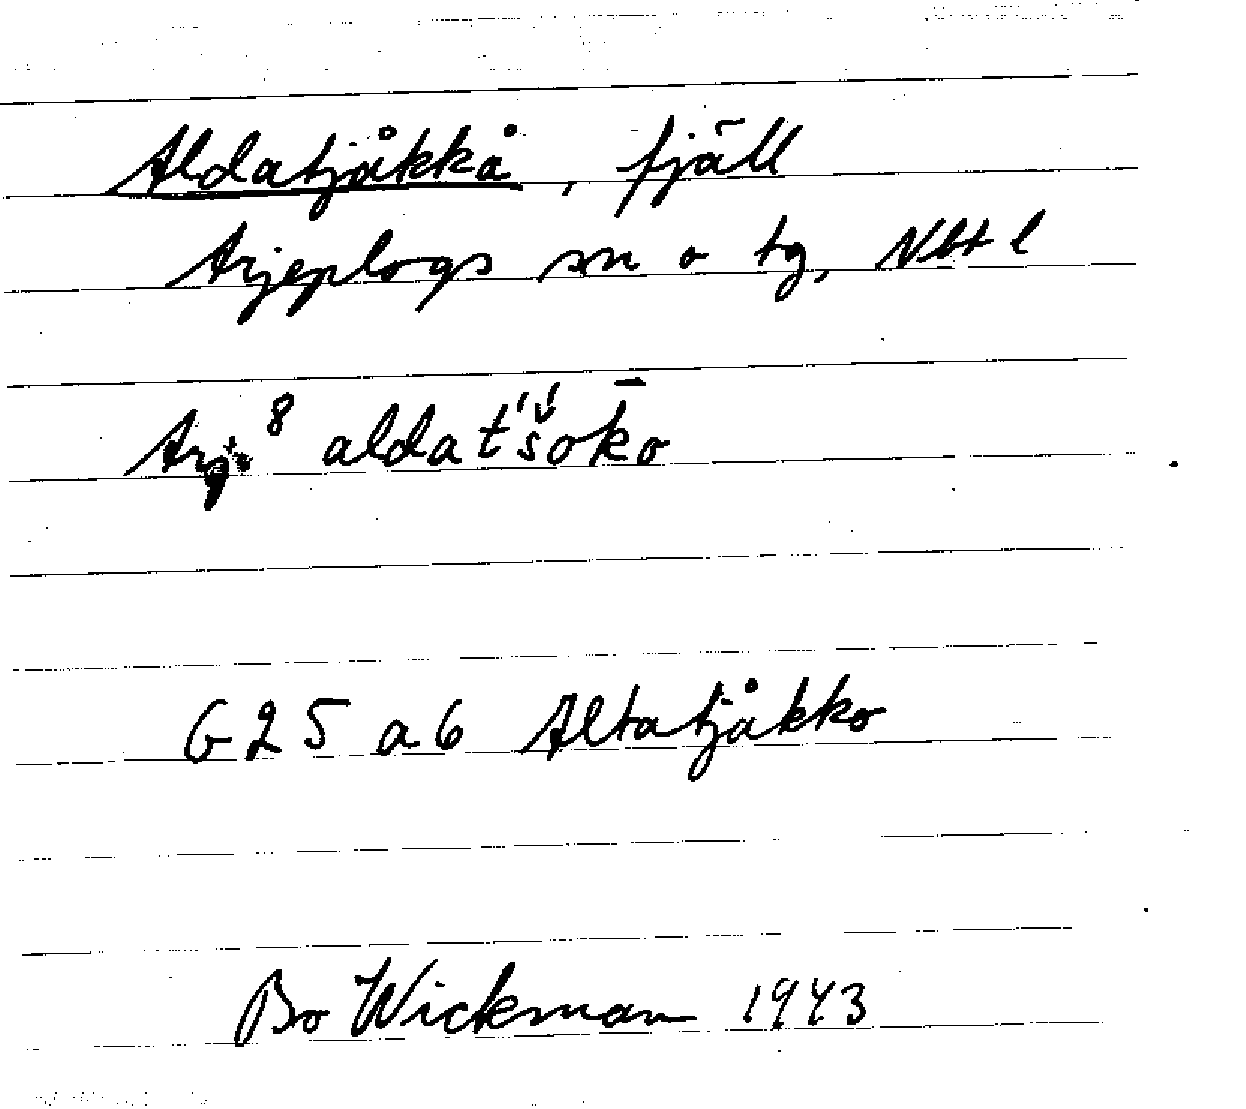 Aldatjåkkå, fjäll
Arjeplogs sn o tg, Nbt l
Arj. 8 aldat'š́ok̄o
G25 a6 Altatjåkko
Bo Wickman 1943